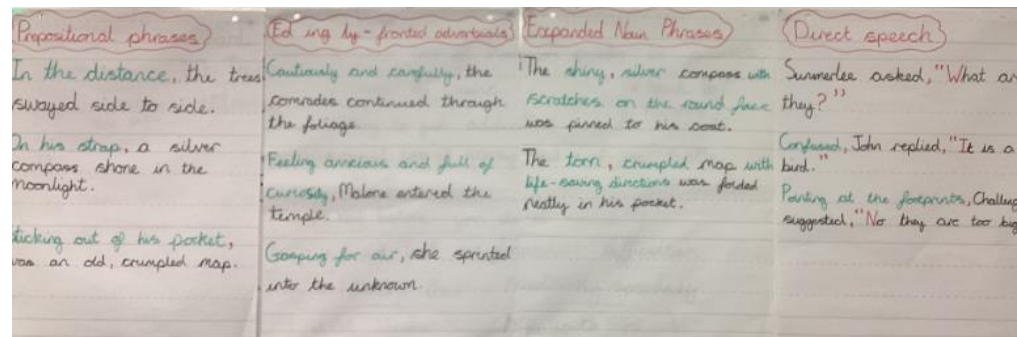 Prepositional phrases
In the distance, the trees
swayed side to side.
On his strap, a silver
compass shone in the
moonlight.
ticking out of his pocket,
was an old, crumpled map.
Ed ing ly - fronted adverbials
Cautiously and carefully, the
comrades continued through
the foliage.
Feeling anxious and full of
curiosity, Malone entered the
temple.
Gasping for air, she sprinted
into the unknown.
Expanded Noun Phrases
The shiny, silver compass with
scratches on the round face
was pinned to his coat.
The torn, crumpled map with
life-saving directions was folded
neatly in his pocket.
Direct speech
Summerlee asked, "What ar
they?"
Confused, John replied, "It is a
bird."
Pointing at the footprints, Challeng
suggested, "No they are too big